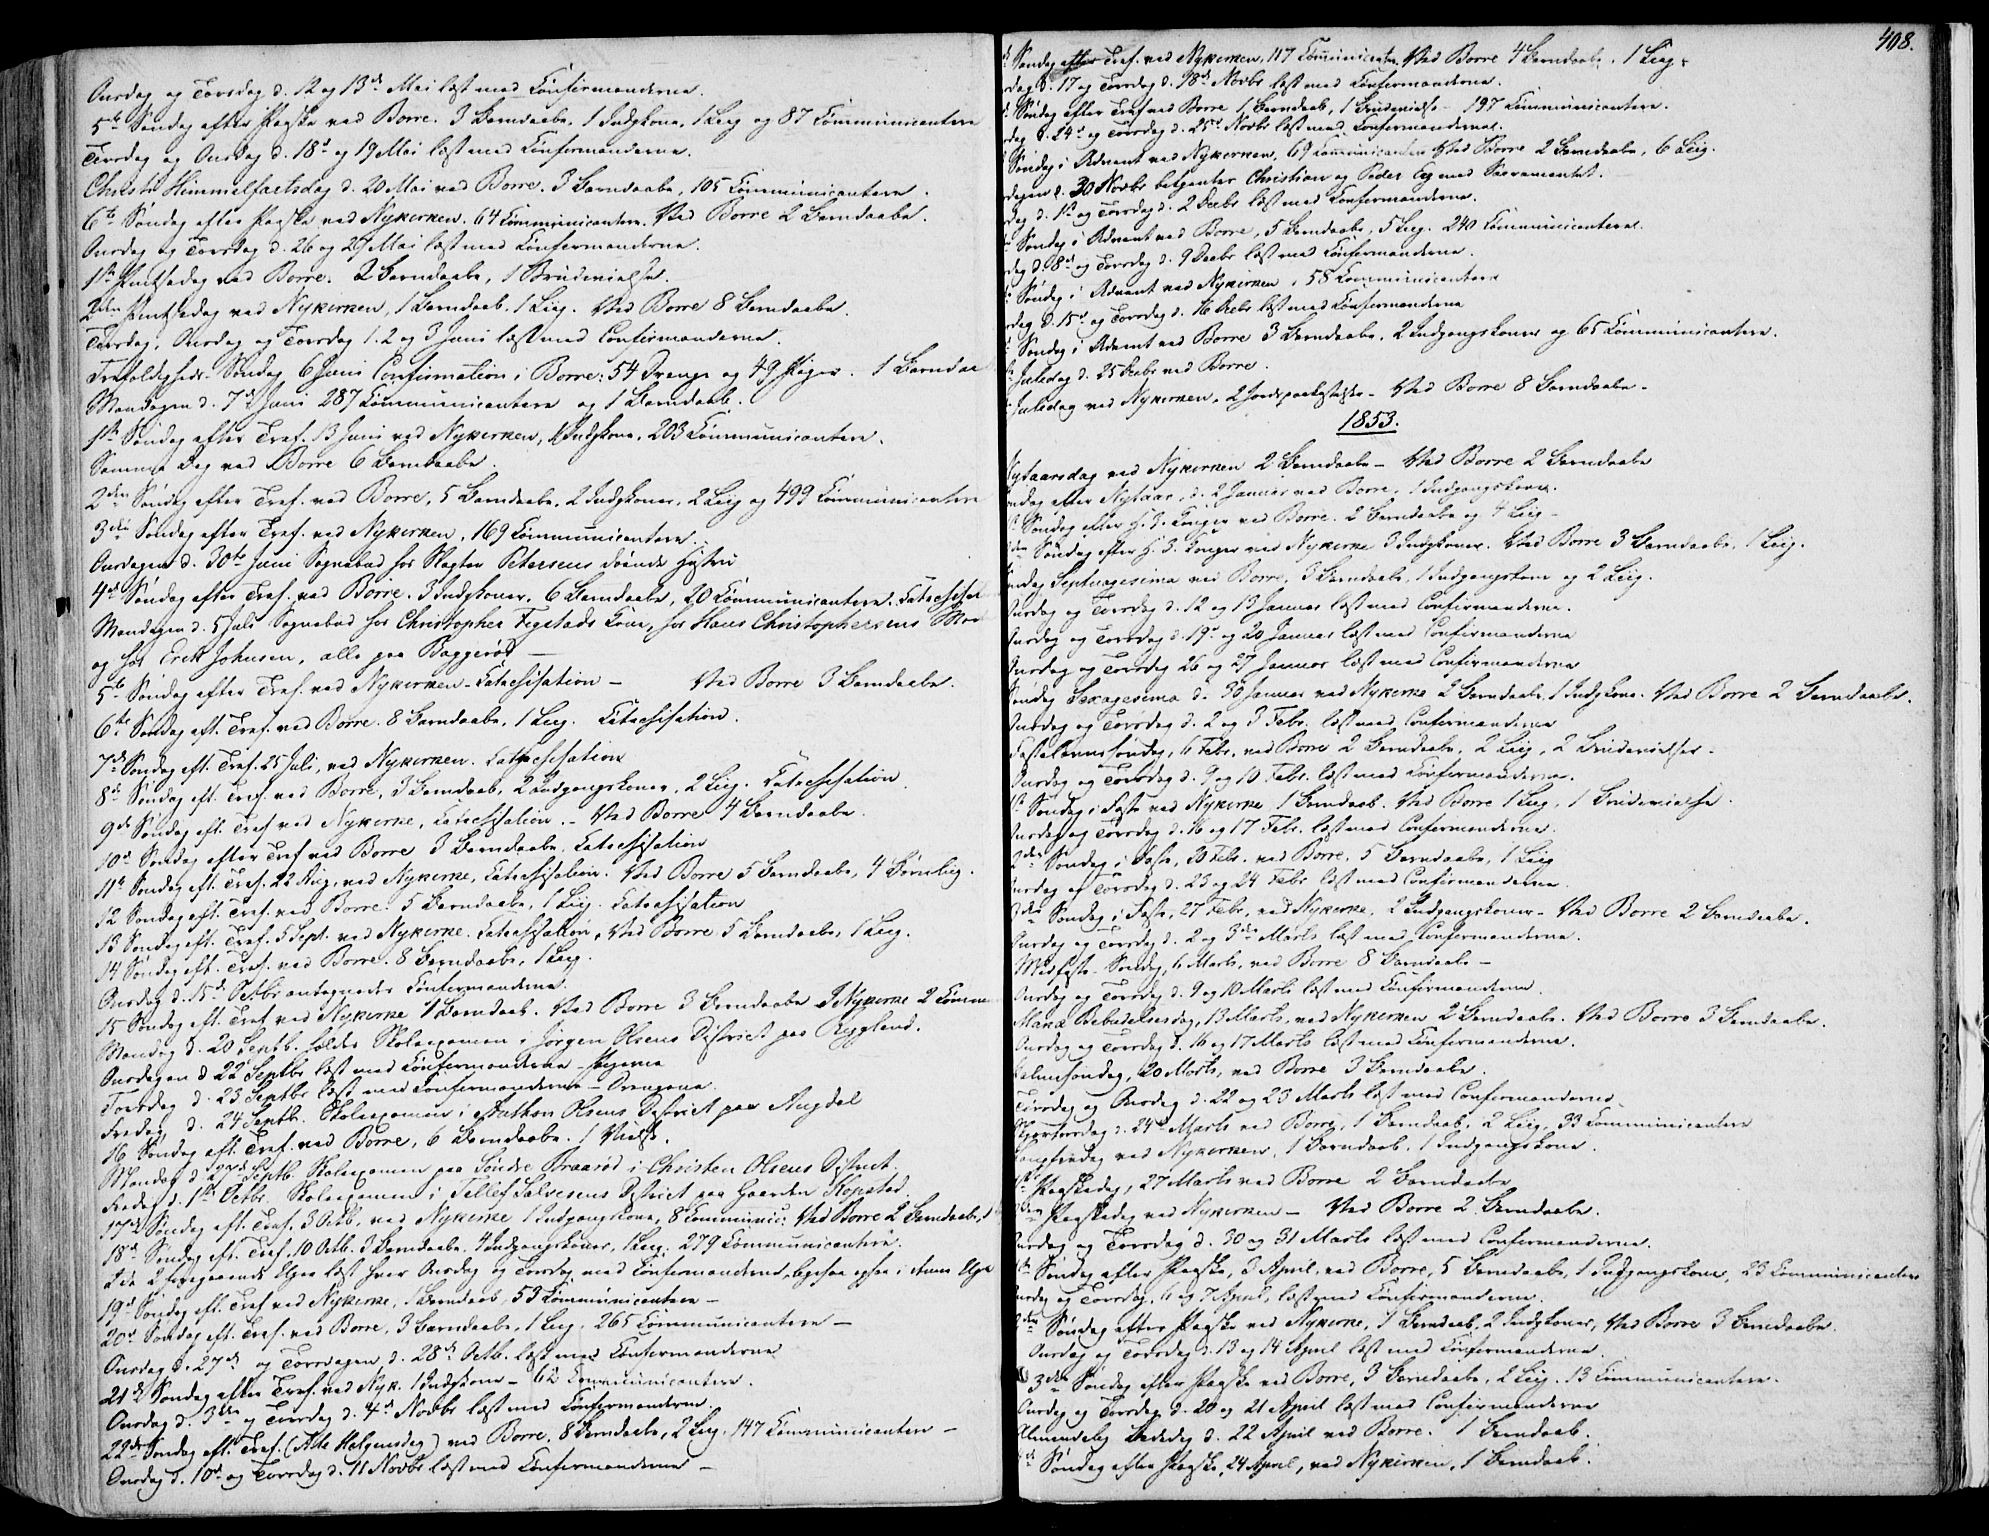 Onsdag og Torsdag d. 12 og 13de Mai læst med Confirmanderne.
5te Søndag efter Paaske ved Borre. 3 Barndaabe, 1 Indgkone, 1 Liig og 87 Communicantere
Tirsdag og Onsdag d. 18de og 19 Mai læst med Confirmanderne.
Christi Himmelfartsdag d. 20 Mai ved Borre. 3 Barndaabe, 105 Communicantere.
6te Søndag efter Paaske ved Nykirken. 64 Communicantere. Ved Borre 2 Barndaabe.
Onsdag og Torsdag d. 26 og 27 Mai læst med Confirmanderne.
1ste Pintsedag ved Borre. 2 Barndaabe, 1 Brudevielse.
2den Pintsedag ved Nykirken, 1 Barndaab, 1 Liig. Ved Borre 8 Barndaabe.
Tirsdag, Onsdag og Torsdag 1. 2 og 3 Juni læst med Confirmanderne.
Trefoldigheds-Søndag 6 Juni Confirmation i Borre: 54 Drenge og 49 Piger. 1 Barndaa
Mandagen d. 7de Juni 287 Communicantere og 1 Barndaab.
1ste Søndag efter Tref. 13 Juni ved Nykirken, 1 Indgkone, 203 Communicantere.
Samme Dag ved Borre 6 Barndaabe.
2den Søndag efter Tref. ved Borre, 5 Barndaabe, 2 Indgkoner, 2 Liig og 499 Communicantere
3die Søndag efter Tref. ved Nykirken, 169 Communicantere.
Onsdagen d. 30te Juni Sognebud hos Slagter Petersens døende Hustru
4de Søndag efter Tref. ved Borre. 3 Indgkoner, 6 Barndaabe, 20 Communicantere. Catechisat
Mandagen d. 5 Juli Sognebud hos Christopher Fegstads Kone, hos Hans Christophersens Mo
og hos Erik Johnsen, alle paa Baggerød —
5te Søndag efter Tref. ved Nykirken - Catechisation — Ved Borre 3 Barndaabe.
6te Søndag eft. Tref. ved Borre. 8 Barndaabe, 1 Liig. Catechisation.
7de Søndag eft. Tref. 25 Juli, ved Nykirken. Catechisation
8de Søndag eft. Tref. ved Borre, 3 Barndaab, 2 Indgangskoner, 2 Liig. Catechisation.
9de Søndag eft. Tref ved Nykirke, Catechisation. - Ved Borre 4 Barndaabe.
10de Søndag efter Tref ved Borre 3 Barndaabe. Catechisation
11te Søndag eft. Tref. 22 Aug, ved Nykirke, Catechisation. Ved Borre 5 Barndaabe, 4 Børnlig.
12 Søndag eft. Tref. ved Borre. 5 Barndaabe, 1 Liig. Catechisation
13 Søndag eft. Tref. 5 Sept. ved Nykirke. Catechisation. Ved Borre 5 Barndaabe, 1 Liig.
14 Søndag eft. Tref. ved Borre. 8 Barndaabe, 1 Liig.
Onsdag d. 15de Septbr antegnedes Confirmanderne.
15 Søndag eft. Tref ved Nykirke 1 Barndaab. Ved Borre 3 Barndaabe I Nykirke 2 Commu
Mandag d. 20 Septb. holdt Skoleexamen i Jörgen Olsens District paa Rygglund.
Onsdagen d 22de Septbr læst med Confirmanderne - Pigerne
Torsdag d. 23 Septbr læst med Confirmanderne - Drengene.
Fredag d. 24 Septb. Skoleexamen i Anthon Olsens District paa Augdal
16 Søndag eft. Tref. ved Borre, 6 Barndaabe. 1 Vielse.
Mandag d 27de Septb. Skoleexamen paa Søndre Braarød i Christen Olsens District.
Fredag d. 1ste Octbr. Skoleexamen i Tellef Salvesens District paa Gaarden Kopstad.
17de Søndag eft. Tref. 3 Octb. ved Nykirke 1 Indgangskone, 8 Communic: Ved Borre 2 Barndaabe,
18de Søndag eft. Tref. 10 Octb. 3 Barndaabe, 4 Indgangskoner, 1 Liig. 279 Communicantere.
I de 2 foregaaende Uger læst hver Onsdag og Torsdag med Confirmanderne, ligesaa ogsaa i denne Uge
19de Søndag eft. Tref ved Nykirke, 1 Barndaab, 53 Communicantere —
20de Søndag eft. Tref. ved Borre, 3 Barndaabe, 1 Liig. 265 Communicantere —
Onsdag d. 27de og Torsdagen d. 28de Octb. læst med Confirmanderne
21de Søndag efter Tref. ved Nyk. 1 Indgkone - 62 Communicantere.
Onsdag d. 3die og Torsdag d. 4de Novbr læst med Confirmanderne.
22de Søndag eft. Tref. (Alle Helgensdag) ved Borre, 8 Barndaabe, 2 Liig. 147 Communicantere —
Onsdag d. 10de og Torsdag d. 11 Novbr læst med Confirmanderne —
408.
Søndag efter Tref. ved Nykirken, 117 Communicanter. Ved Borre 4 Barndaabe. 1 Liig.
dag d. 17 og Torsdag d. 18de Novbr læst med Confirmanderne.
Søndag efter Tref ved Borre 1 Barndaab, 1 Brudevielse - 197 Communicantere.
dag d. 24de og Torsdag d. 25de Novbr læst med Confirmanderne.
Søndag i Advent ved Nykirken, 69 Communicanter Ved Borre 2 Barndaabe, 6 Liig.
dagen d. 30 Novbr betjentes Christian og Peder med Sacramentet.
dag d. 1ste og Torsdag d. 2 Decbr læst med Confirmanderne.
Søndag i Advent ved Borre, 5 Barndaabe, 5 Liig. 240 Communicantere.
dag d. 8de og Torsdag d. 9 Decbr læst med Confirmanderne.
Søndag i Advent ved Nykirken, 58 Communicantere
dag d. 15de og Torsdag d. 16 Decbr læst med Confirmanderne
Søndag i Advent ved Borre 3 Barndaabe. 2 Indgangskoner og 65 Communicantere.
Juledag d. 25 Decbr ved Borre.
Juledag ved Nykirken, 2 Jordpaakastelse - Ved Borre 8 Barndaabe -
1853.
Nytaarsdag ved Nykirken 2 Barndaabe - Ved Borre 2 Barndaabe
ndag efter Nytaar, d. 2 Januar ved Borre, 1 Indgangskone.
Søndag efter H. 3. Konger ved Borre. 2 Barndaabe og 4 Liig -
Søndag efter H. 3. Konger ved Nykirke 3 Indgkoner. Ved Borre 3 Barndaabe, 1 Liig.
ndag Septuagesima ved Borre, 3 Barndaabe, 1 Indgangskone og 2 Liig.
Onsdag og Torsdag d. 12 og 13 Januar læst med Confirmanderne.
Onsdag og Torsdag d. 19de og 20 Januar læst med Confirmanderne
Onsdag og Torsdag 26 og 27 Januar læst med Confirmanderne
Søndag Sexagesima d. 30 Januar ved Nykirke 2 Barndaabe, 1 Indgkone. Ved Borre 2 Barndaabe.
Onsdag og Torsdag d. 2 og 3 Febr. læst med Confirmanderne
Fastelavnssøndag, 6 Febr. ved Borre 2 Barndaabe, 2 Liig, 2 Brudevielser.
Onsdag og Torsdag d. 9 og 10 Febr. læst med Confirmanderne.
1ste Søndag i Faste ved Nykirke 1 Barndaab. Ved Borre 1 Liig, 1 Brudevielse.
Onsdag og Torsdag d. 16 og 17 Febr. læst med Confirmanderne.
2den Søndag i Faste, 20 Febr. ved Borre. 5 Barndaabe, 1 Liig
Onsdag og Torsdag d. 23 og 24 Febr læst med Confirmanderne
3die Søndag i Faste, 27 Febr, ved Nykirke, 2 Indgangskoner - Ved Borre 2 Barndaabe.
Onsdag og Torsdag d. 2 og 3die Marts læst med Confirmanderne.
Midfaste-Søndag, 6 Marts, ved Borre 8 Barndaabe —
Onsdag og Torsdag d. 9 og 10 Marts læst med Confirmanderne.
Mariæ Bebudelsesdag, 13 Marts, ved Nykirken 2 Barndaabe. Ved Borre 3 Barndaabe.
Onsdag og Torsdag d. 16 og 17 Marts læst med Confirmanderne.
Palmesøndag, 20 Marts, ved Borre 3 Barndaabe.
Tirsdag og Onsdag d. 22 og 23 Marts læst med Confirmanderne
Skjertorsdag d. 24de Marts ved Borre, 1 Barndaab, 2 Liig, 33 Communicantere
Langfredag ved Nykirken, 1 Barndaab, 1 Indgangskone.
1ste Paaskedag, 27 Marts ved Borre 2 Barndaabe
Paaskedag ved Nykirken — Ved Borre 2 Barndaabe.
Onsdag og Torsdag d. 30 og 31 Marts læst med Confirmanderne.
1ste Søndag efter Paaske, 3 April, ved Borre, 5 Barndaabe, 1 Indgangskone, 23 Communicantere
Onsdag og Torsdag, 6 og 7 April, læst med Confirmanderne.
2den Søndag efter Paaske ved Nykirke, 1 Barndaab, 2 Indgkoner, Ved Borre 3 Barndaabe.
Onsdag og Torsdag d. 13 og 14 April læst med Confirmanderne.
3die Søndag efter Paaske ved Borre, 3 Barndaabe, 2 Liig. 13 Communicantere.
Onsdag og Torsdag d. 20 og 21 April læst med Confirmanderne
Almindelig Bededag d. 22 April ved Borre. 1 Barndaab.
Søndag efter Paaske, 24 April, ved Nykirken, 1 Barndaab.